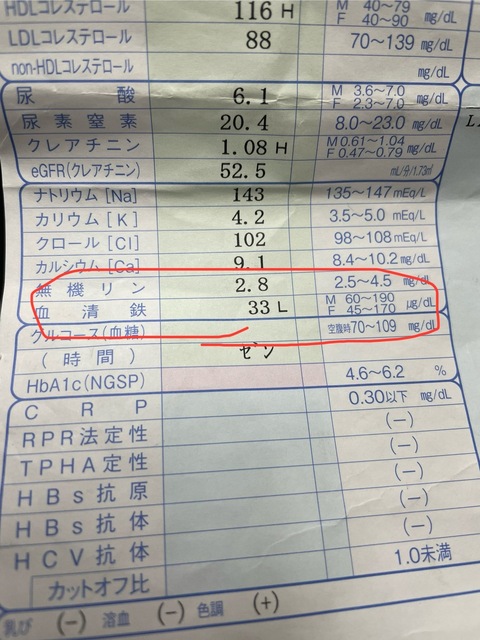 HDLコレステロール 116 H M 40〜79 F 40〜90 mg/dL
LDLコレステロール 88 70〜139 mg/dL
non-HDLコレステロール mg/dL
尿酸 6.1 M 3.6〜7.0 F 2.3〜7.0 mg/dL
尿素窒素 20.4 8.0〜23.0 mg/dL
クレアチニン 1.08 H M 0.61〜1.04 F 0.47〜0.79 mg/dL
eGFR(クレアチニン) 52.5 mL/分/1.73㎡
ナトリウム[Na] 143 135〜147 mEq/L
カリウム[K] 4.2 3.5〜5.0 mEq/L
クロール[Cl] 102 98〜108 mEq/L
カルシウム[Ca] 9.1 8.4〜10.2 mg/dL
無機リン 2.8 2.5〜4.5 mg/dL
血清鉄 33 L M 60〜190 F 45〜170 μg/dL
グルコース(血糖) 空腹時70〜109 mg/dL
(時間) ゼン
HbA1c(NGSP) 4.6〜6.2 %
CRP 0.30以下 mg/dL
RPR法定性 (-)
TPHA定性 (-)
HBs抗原 (-)
HBs抗体 (-)
HCV抗体 1.0未満
カットオフ比
乳び (-) 溶血 (-) 色調 (+)